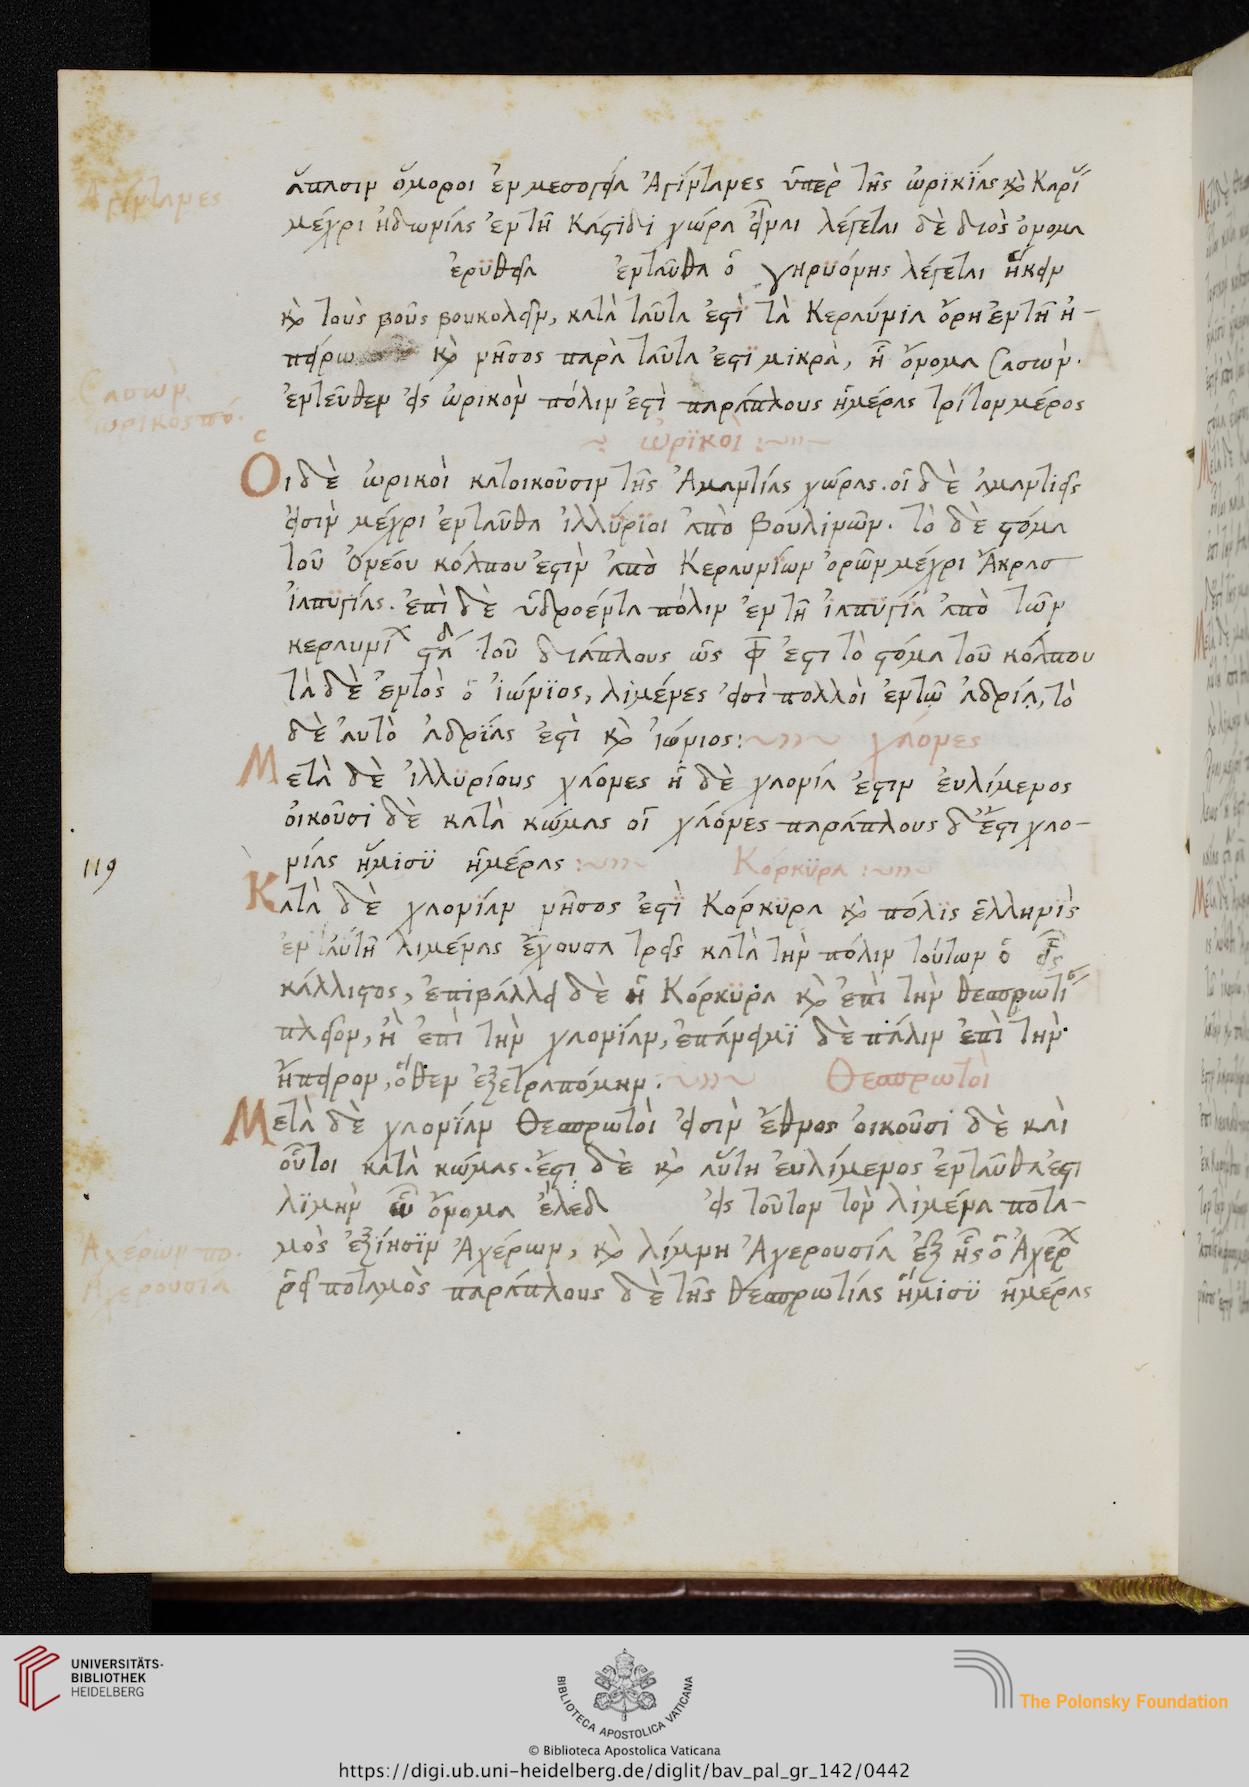 Ἀτίνταμες
ἅπασιν ὅμοροι ἐν μεσογεία Ἀτίντανες ὑπὲρ τῆς ὠρικίας καὶ Καρί
μέχρι ἠδωνίας ἐν τῆ Καστιδι χώρα εἶναι λέγεται δὲ διος ὄνομα
ἐρύθεια ἐνταῦθα ὁ γηρυόνης λέγεται ἥκειν
καὶ τοὺς βοῦς βουκολεῖν, κατὰ ταῦτα ἐστὶ τὰ Κεραύνια ὄρη ἐν τῆ ἠ-
πείρω καὶ νῆσος παρὰ ταῦτα ἐστὶ μικρὰ, ἧ ὄνομα Σασών.
Σασών
ὠρικὸς πό.
ἐντεῦθεν εἰς ὠρικὸν πόλιν ἐστὶ παράπλους ἡμέρας τρίτον μέρος
ὠρϊκοὶ :~
Οἱ δὲ ὠρικοὶ κατοικοῦσιν τῆς Ἀμαντίας χώρας. οἱ δὲ ἀμαντιεῖς
εἰσὶν μέχρι ἐνταῦθα ἰλλύριοι ἀπὸ βουλινῶν. τὸ δὲ στόμα
τοῦ Ἰονίου κόλπου ἐστὶν ἀπὸ Κεραυνίων ὀρῶν μέχρι Ἄκρας
ἰαπυγίας. ἐπὶ δὲ ὑδροέντα πόλιν ἐν τῆ ἰαπυγία ἀπὸ τῶν
κεραυνί στά τοῦ διάπλους ὡς φ ἐστι τὸ στόμα τοῦ κόλπου
τὰ δὲ ἐντὸς ὁ ἰώνιος, λιμένες εἰσὶ πολλοὶ ἐν τῶ ἀδρία, τὸ
δὲ αὐτὸ ἀδρίας ἐστὶ καὶ ἰώνιος:~ χάονες
Μετὰ δὲ ἰλλυρίους χάονες ἡ δὲ χαονία ἐστιν εὐλίμενος
οἰκοῦσι δὲ κατὰ κώμας οἱ χάονες παράπλους δ' ἔστι χαο-
119
νίας ἥμισυ ἡμέρας :~ Κόρκυρα :~
Κατὰ δὲ χαονίαν νῆσος ἐστὶ Κόρκυρα καὶ πόλις ἑλληνὶς
ἐν αὐτῆ λιμένας ἔχουσα τρεῖς κατὰ τὴν πόλιν τούτων ὁ εἷς
κάλλιστος, ἐπιβάλλει δὲ ἡ Κόρκυρα καὶ ἐπὶ τὴν θεσπρωτί
πλεῖον, ἢ ἐπὶ τὴν χαονίαν, ἐπάνειμι δὲ πάλιν ἐπὶ τὴν
ἤπειρον, ὅθεν ἐξετραπόμην. ~ Θεσπρωτοὶ
Μετὰ δὲ χαονίαν Θεσπρωτοὶ εἰσὶν ἔθνος οἰκοῦσι δὲ καὶ
οὗτοι κατὰ κώμας. ἔστι δὲ καὶ αὕτη εὐλίμενος ἐνταῦθα ἐστι
λιμὴν ᾧ ὄνομα ἐλεα εἰς τοῦτον τὸν λιμένα ποτα-
Ἀχέρων πο.
Ἀχερουσία
μὸς ἐξίησιν Ἀχέρων, καὶ λίμνη Ἀχερουσία ἐξ ἧς ὁ Ἀχέρ
ῥεῖ ποταμὸς παράπλους δὲ τῆς θεσπρωτίας ἥμισυ ἡμέρας
UNIVERSITÄTS-
BIBLIOTHEK
HEIDELBERG
BIBLIOTECA APOSTOLICA VATICANA
The Polonsky Foundation
© Biblioteca Apostolica Vaticana
https://digi.ub.uni-heidelberg.de/diglit/bav_pal_gr_142/0442